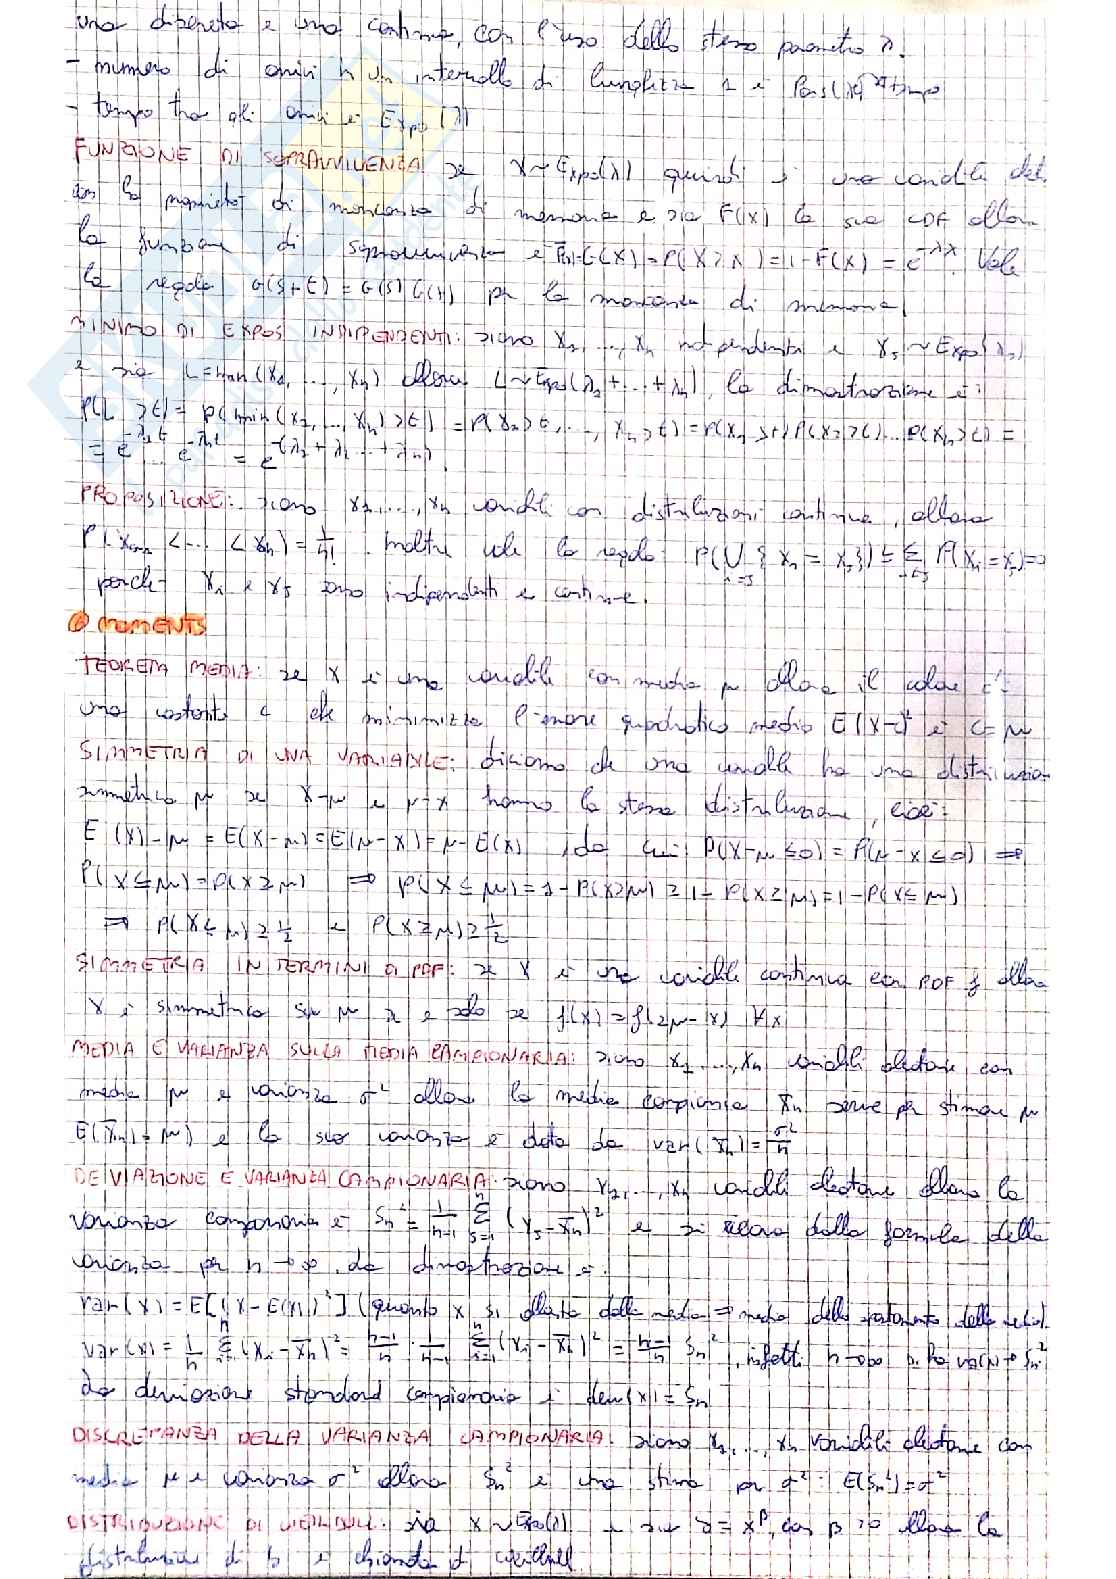 una discreta e una continua, con l'uso dello stesso parametro λ.
- numero di arrivi in un intervallo di lunghezza 1 è Pois(λ) tempo
- tempo tra gli arrivi è Expo(λ)
FUNZIONE DI SOPRAVVIVENZA: se X~Expo(λ) quindi è una variabile
con la proprietà di mancanza di memoria e sia F(x) la sua CDF allora
la funzione di sopravvivenza è G(x)=P(X>x)=1-F(x)=e^-λx. Vale
la regola G(s+t)=G(s)G(t) per la mancanza di memoria.
MINIMO DI EXPOS INDIPENDENTI: siano X1,...,Xn indipendenti e Xj~Expo(λj)
e sia L=min(X1,...,Xn) allora L~Expo(λ1+...+λn), la dimostrazione è:
P(L>t)=P(min(X1,...,Xn)>t)=P(X1>t,...,Xn>t)=P(X1>t)P(X2>t)...P(Xn>t)=
=e^-λ1t...e^-λnt=e^-(λ1+λ2...+λn)
PROPOSIZIONE: siano X1,...,Xn variabili con distribuzioni continue, allora
<...<Xan)=1/n!. Inoltre vale la regola: P(⋃i≠j{Xi=Xj})≤Σi≠j P(Xi=Xj)=0
perché Xi e Xj sono indipendenti e continue.
6 MOMENTS
TEOREMA MEDIA: se X è una variabile con media μ allora il valore è:
una costante c che minimizza l'errore quadratico medio E(X-c)² è c=μ
SIMMETRIA DI UNA VARIABILE: diciamo che una variabile ha una distribuzione
simmetrica μ se X-μ e μ-X hanno la stessa distribuzione, cioè:
E(X)-μ=E(X-μ)=E(μ-X)=μ-E(X), da cui: P(X-μ≤0)=P(μ-X≤0) ⇒
P(X≤μ)=P(X≥μ) ⇒ P(X≤μ)=1-P(X>μ)≥1-P(X≥μ)=1-P(X≤μ)
⇒ P(X≤μ)≥1/2 e P(X≥μ)≥1/2
SIMMETRIA IN TERMINI DI PDF: se X è una variabile continua con PDF f allora
X è simmetrica su μ se e solo se f(x)=f(2μ-x) ∀x
MEDIA E VARIANZA SULLA MEDIA CAMPIONARIA: siano X1,...,Xn variabili aleatorie con
media μ e varianza σ² allora la media campionaria X̄n serve per stimare μ
E(X̄n)=μ) e la sua varianza è data da var(X̄n)=σ²/n
DEVIAZIONE E VARIANZA CAMPIONARIA: siano X1,...,Xn variabili aleatorie allora la
varianza campionaria è Sn²=1/(n-1) Σj=1 n (Xj-X̄n)² e si ricava dalla formula della
varianza per n→∞. la dimostrazione è:
var(X)=E[(X-E(X))²] (quanto X si allontana dalla media ⇒ media dello
var(X)=1/n Σ(Xi-X̄n)²=(n-1)/n · 1/(n-1) Σ(Xi-X̄n)²=(n-1)/n Sn², infatti n→∞
la deviazione standard campionaria è dev(X)=Sn
DISCREPANZA DELLA VARIANZA CAMPIONARIA: siano X1,...,Xn variabili aleatorie con
media μ e varianza σ² allora Sn² è una stima per σ²: E(Sn²)=σ²
DISTRIBUZIONE DI WEIBULL: sia X~Expo(λ) e sia γ=X^β, con β>0 allora la
distribuzione di è chiamata di weibull